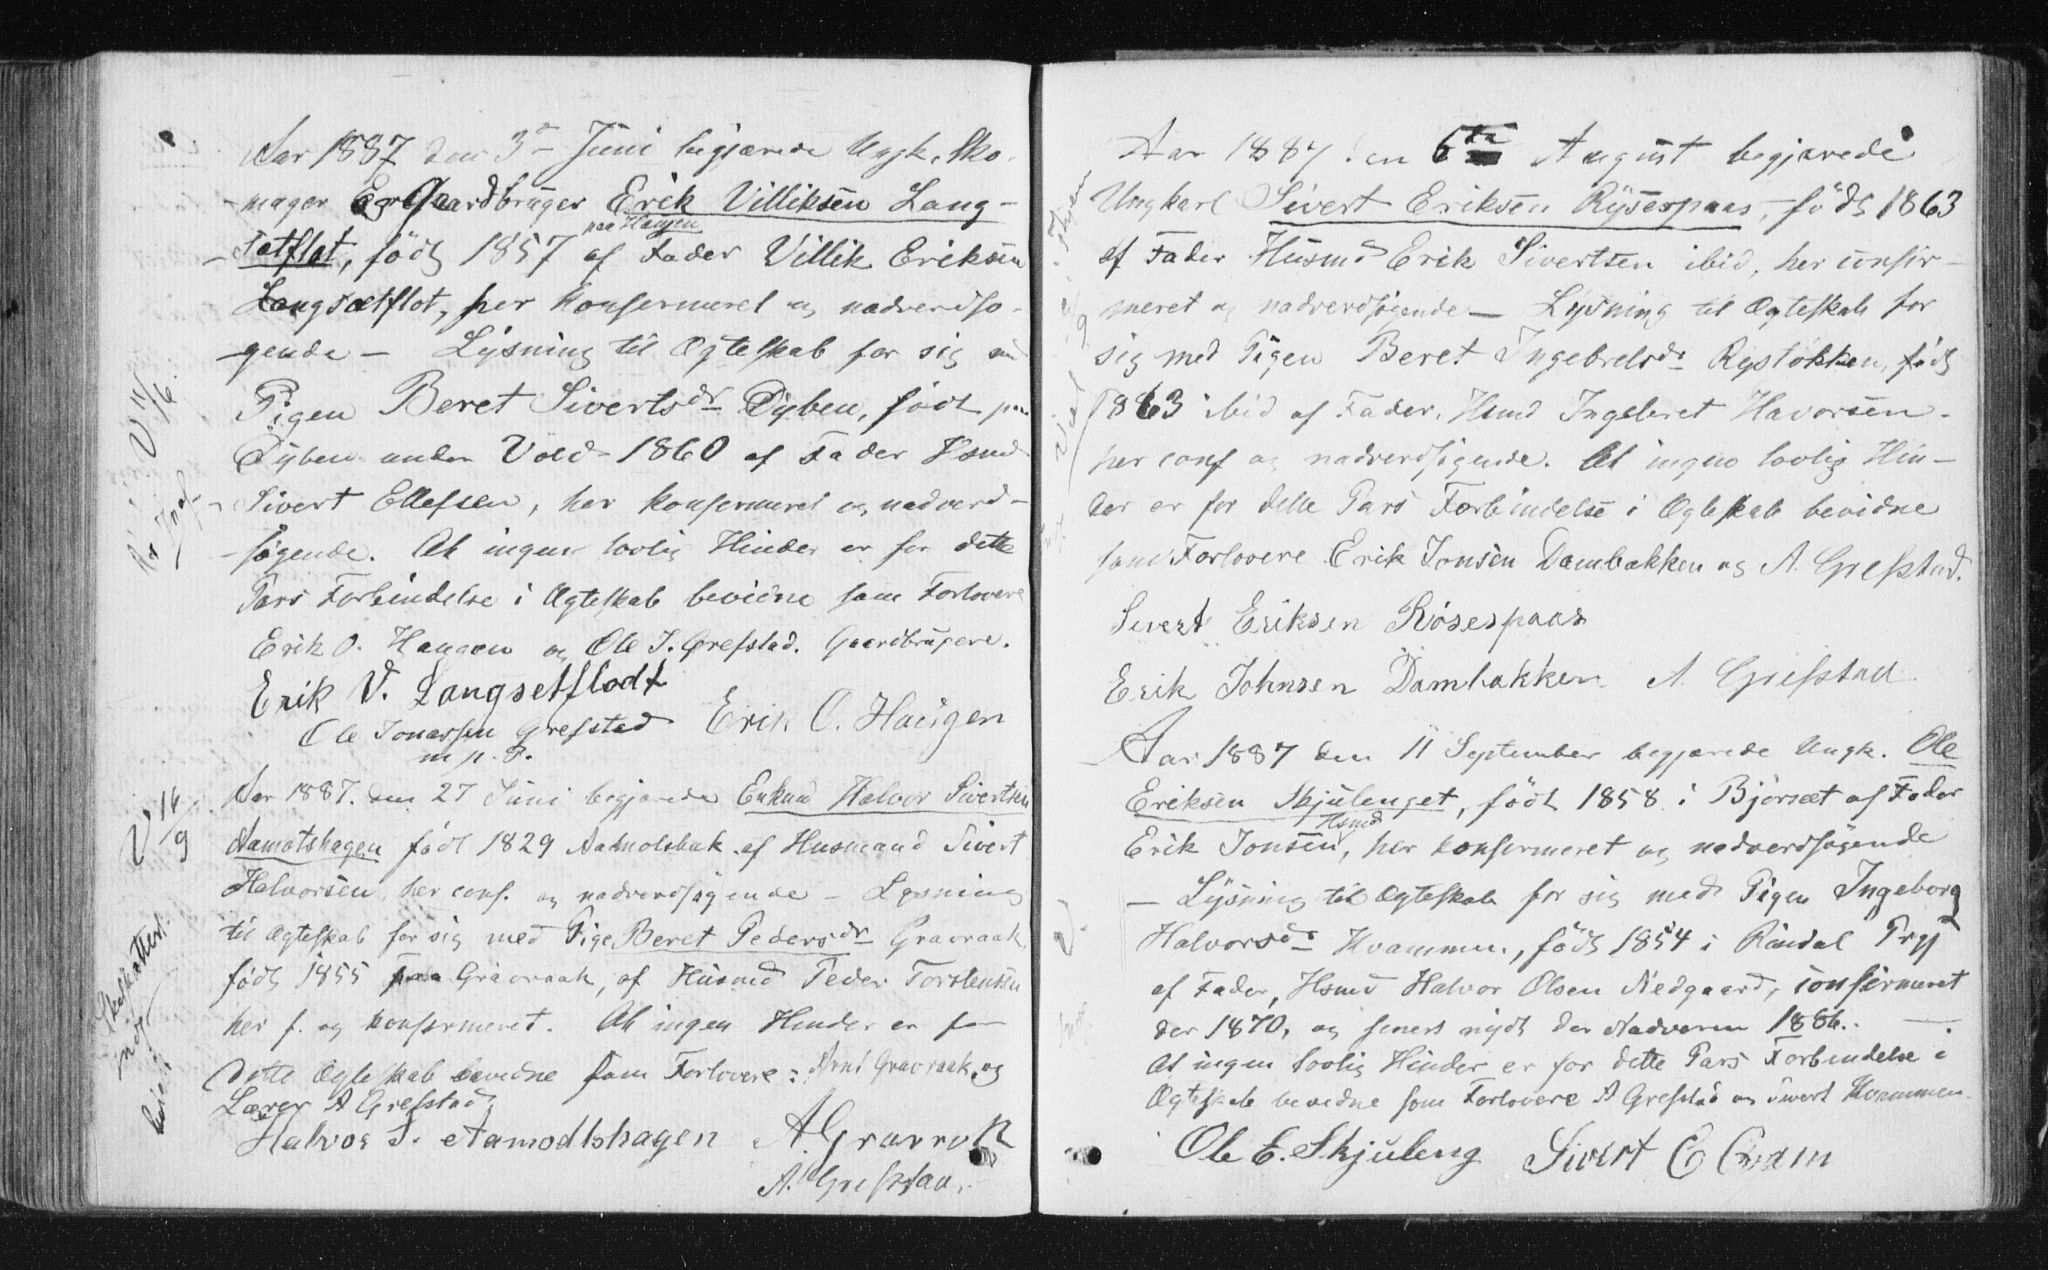 Aar 1887 den 3d Juni begjærede Ungk. Sko-
mager og Gaardbruger Erik Villiksen Lang-
sætflot, født 1857 paa Haugen af Fader Villik Eriksen
Langsætflot, her konfermeret og nadverdsø-
gende — Lysning til Ægteskab for sig med
Pigen Beret Sivertsdr Dyben, født paa
Dyben under Vold 1860 af Fader Hsmd
Sivert Ellefsen, her konfermeret og nadverd-
søgende. At ingen lovlig Hinder er for dette
Pars Forbindelse i Ægteskab bevidne som Forlovere
Erik O. Haugen og Ole J. Grefstad. Gaardbrugere.
Erik V. Langsetflodt
Ole Jonassen Grefstad Erik O. Haugen
m. p. P.
V 11/6
Aar 1887. den 27 Juni begjærede Enkmd Halvor Sivertsen
Aamotshagen født 1829 Aamotsbak. af Husmand Sivert
Halvorsen, her conf. og nadverdsøgende — Lysning
til Ægteskab for sig med Pige Beret Pedersdr Gravraak,
født 1855 paa Gravraak, af Husmd Peder Torstensen
her f. og konfermeret. At ingen Hinder er for
dette Ægteskab bevidne som Forlovere: Arnt Gravraak og
Lærer A Grefstad
Halvor S. Aamodtshagen A. Gravrok
A. Grefstad.
V 16/9
Aar 1887 den 6te August begjærede
Ungkarl Sivert Eriksen Rysespaas, født 1863
af Fader Husmd Erik Sivertsen ibid, her confir-
meret og nadverdsøgende — Lysning til Ægteskab for
sig med Pigen Beret Ingebretsdr Rystøkken, født
1863 ibid af Fader, Hsmd Ingebret Havorsen.
her conf og nadverdsøgende. At ingen lovlig Hin-
der er for dette Pars Forbindelse i Ægteskab bevidne
som Forlovere Erik Jonsen Dambakken og A. Grefstad.
Sivert Eriksen Røsespaas
Erik Johnsen Dambakken A. Grefstad
Aar 1887 den 11 September begjærede Ungk. Ole
Eriksen Skjulenget, født 1858 i Bjørsæt af Fader
Hsmd Erik Jonsen, her konfermeret og nadverdsøgende
— Lysning til Ægteskab for sig med Pigen Ingeborg
Halvorsdr Kvammen, født 1854 i Rindal Prgj
af Fader, Hsmd Halvor Olsen Nedgaard, confirmeret
der 1870, og senest nydt der Nadveren 1886. —
At ingen lovlig Hinder er for dette Pars Forbindelse i
Ægteskab bevidne som Forlovere A Grefstad og Sivert Kvammen
Ole E. Skjuleng Sivert E Qvam